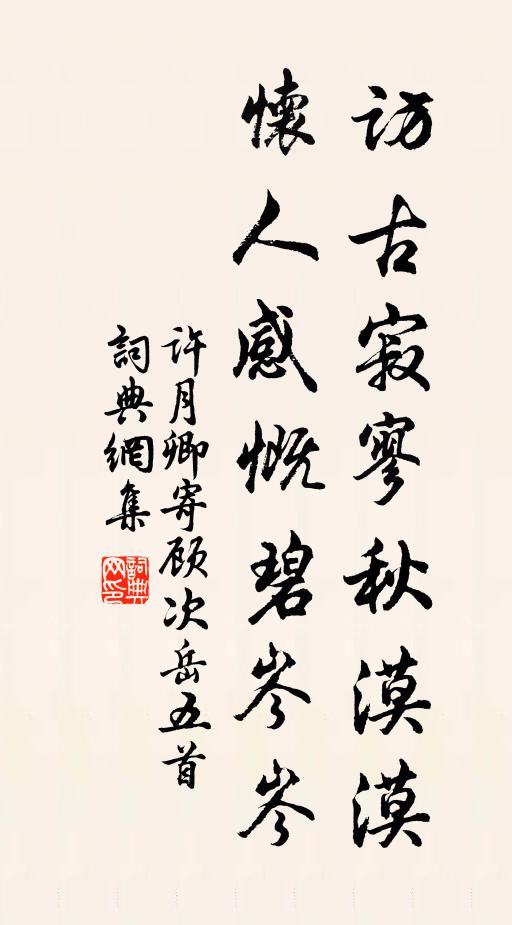 訪古寂寥秋漠漠
懷人感慨碧岑岑
许月卿寄顾次岳五首
詞典網集
詞典网印